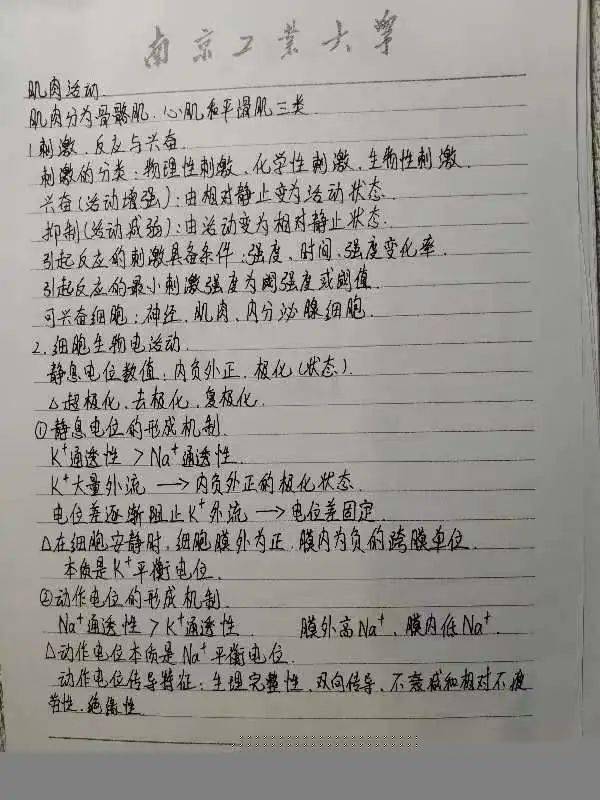 南京工业大学
肌肉活动.
肌肉分为骨骼肌、心肌和平滑肌三类
1.刺激、反应与兴奋.
刺激的分类：物理性刺激、化学性刺激、生物性刺激.
兴奋(活动增强)：由相对静止变为活动状态.
抑制(活动减弱)：由活动变为相对静止状态.
引起反应的刺激具备条件：强度、时间、强度变化率.
引起反应的最小刺激强度为阈强度或阈值.
可兴奋细胞：神经、肌肉、内分泌腺细胞.
2.细胞生物电活动.
静息电位数值：内负外正、极化(状态).
△超极化、去极化、复极化.
①静息电位的形成机制.
K⁺通透性 > Na⁺通透性.
K⁺大量外流 → 内负外正的极化状态.
电位差逐渐阻止K⁺外流 → 电位差固定.
△在细胞安静时，细胞膜外为正、膜内为负的跨膜单位.
本质是K⁺平衡电位.
②动作电位的形成机制.
Na⁺通透性 > K⁺通透性. 膜外高Na⁺、膜内低Na⁺.
△动作电位本质是Na⁺平衡电位.
动作电位传导特征：生理完整性、双向传导、不衰减和相对不疲
劳性、绝缘性